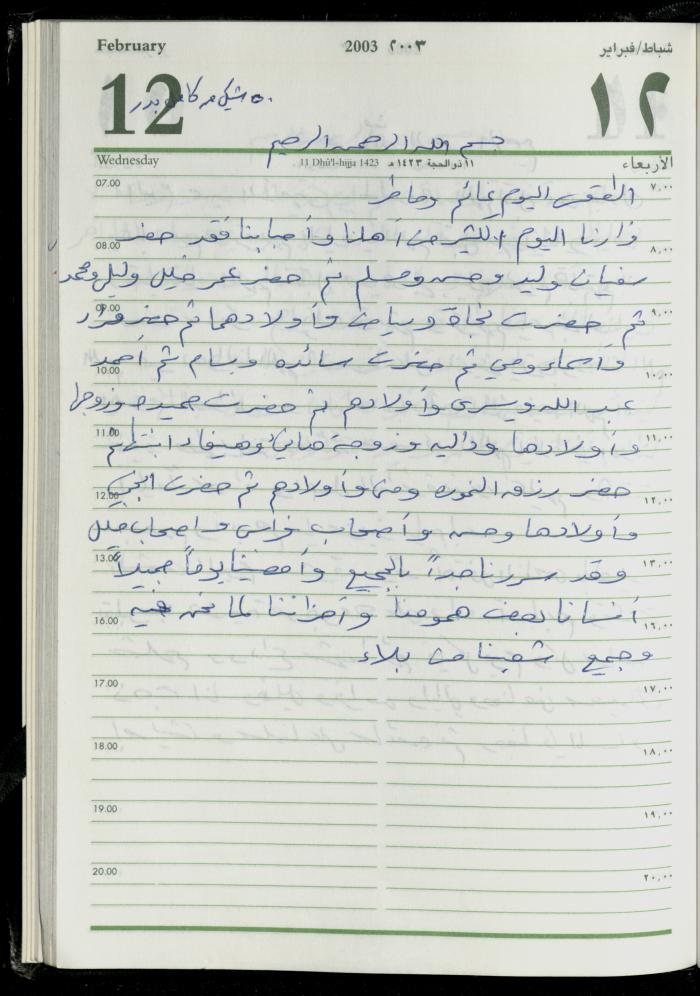 February 2003 ٢٠٠٣ شباط/فبراير
12 ١٢
٥٠ شيكل من كامل بدر
بسم الله الرحمن الرحيم
Wednesday 11 Dhū'l-hijja 1423 ١١ ذو الحجة ١٤٢٣ هـ الأربعاء
07.00 الطقس اليوم غائم وماطر ٧,٠٠
زارنا اليوم الكثير من أهلنا وأحبابنا فقد حضر
08.00 ٨,٠٠
سفيان وليد وحسن ومسلم ثم حضر عمر خليل وليلى ومحمد
09.00 ثم حضرت نجاة و وأولادهما ثم حضر فؤاد ٩,٠٠
وأسماء ومي ثم حضرت سائده وبسام ثم أحمد
10.00 ١٠,٠٠
عبد الله ويسرى وأولادهم ثم حضرت حميده وزوجها
11.00 وأولادها وداليه وزوجة هاني وهيفاء ابنتهم ١١,٠٠
حضر رزق ومنى وأولادهم ثم حضرت
12.00 ١٢,٠٠
وأولادها وحسن وأصحاب فراس وأصحاب خليل
13.00 وقد سررنا جداً بالجميع وأمضينا يوماً جميلاً ١٣,٠٠
أنسانا بعض همومنا وأحزاننا لما نحن فيه
16.00 ١٦,٠٠
وجميع شعبنا من بلاء
17.00 ١٧,٠٠
18.00 ١٨,٠٠
19.00 ١٩,٠٠
20.00 ٢٠,٠٠